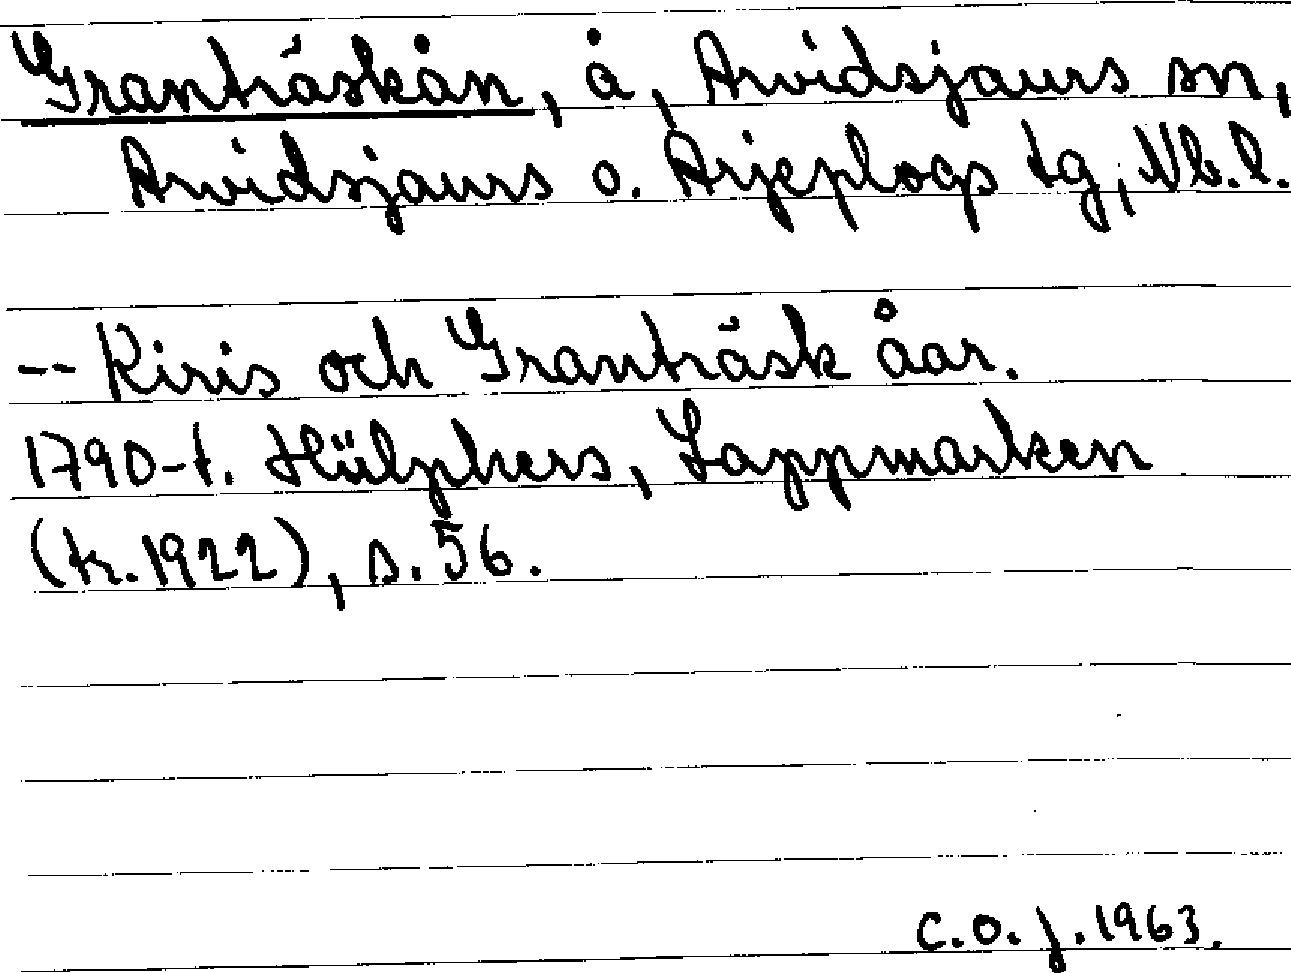 Granträskån, å, Arvidsjaurs sn,
Arvidsjaurs o. Arjeplogs tg, Nb.l.
-- Kiris och Granträsk åar.
1790-t. Hülphers, Lappmarken
(tr. 1922), s. 56.
C.O.J. 1963.